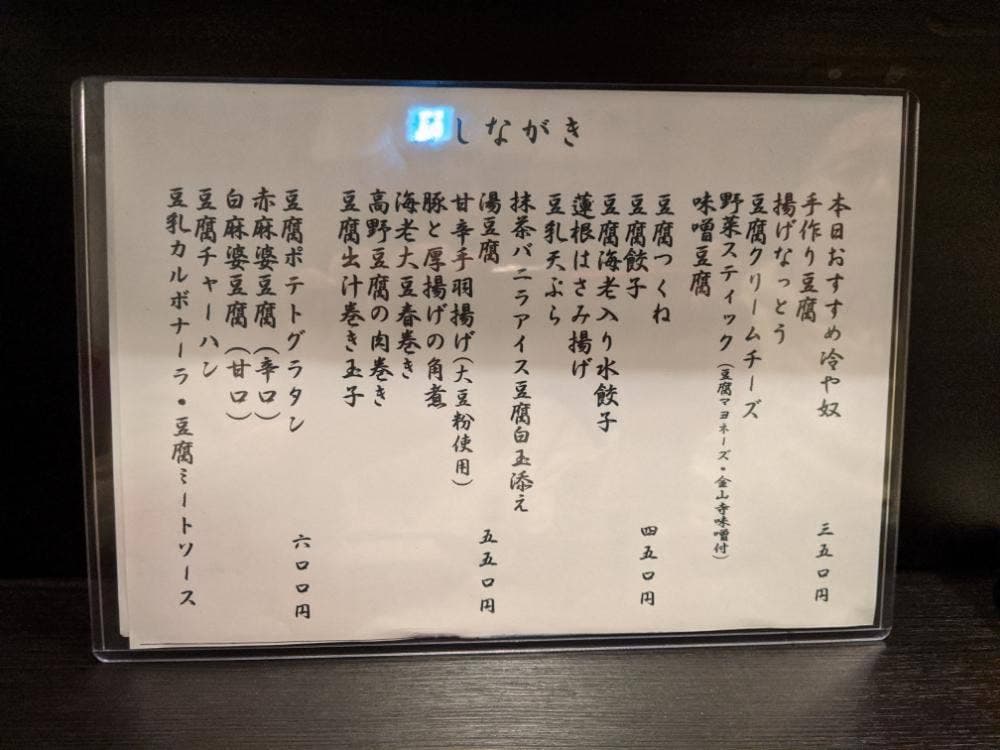 しながき
本日おすすめ冷や奴
手作り豆腐
揚げなっとう
豆腐クリームチーズ
野菜スティック（豆腐マヨネーズ・金山寺味噌付）
味噌豆腐
三五〇円
豆腐つくね
豆腐餃子
豆腐海老入り水餃子
蓮根はさみ揚げ
豆乳天ぷら
抹茶バニラアイス豆腐白玉添え
四五〇円
湯豆腐
甘辛手羽揚げ（大豆粉使用）
豚と厚揚げの角煮
海老大豆春巻き
高野豆腐の肉巻き
豆腐出汁巻き玉子
五五〇円
豆腐ポテトグラタン
赤麻婆豆腐（辛口）
白麻婆豆腐（甘口）
豆腐チャーハン
豆乳カルボナーラ・豆腐ミートソース
六〇〇円